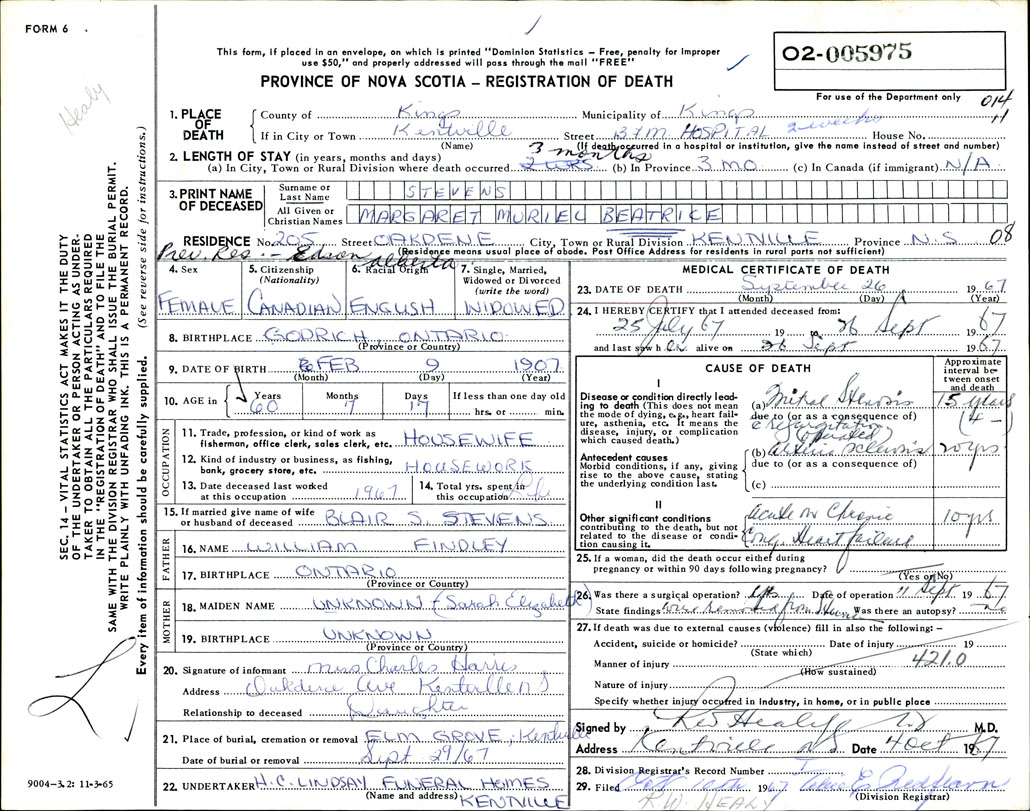 FORM 6
This form, if placed in an envelope, on which is printed "Dominion Statistics – Free, penalty for improper
use $50," and properly addressed will pass through the mail "FREE"
PROVINCE OF NOVA SCOTIA – REGISTRATION OF DEATH
02-005975
For use of the Department only
014
11
Healy
1. PLACE OF DEATH
County of Kings Municipality of Kings
If in City or Town Kentville Street B.F.M. HOSPITAL 2 weeks House No.
(Name) (If death occurred in a hospital or institution, give the name instead of street and number)
2. LENGTH OF STAY (in years, months and days) 3 months
(a) In City, Town or Rural Division where death occurred (b) In Province 3 MO. (c) In Canada (if immigrant) N/A
3. PRINT NAME OF DECEASED
Surname or Last Name STEVENS
All Given or Christian Names MARGARET MURIEL BEATRICE
RESIDENCE No. 205 Street OAKDENE City, Town or Rural Division KENTVILLE Province N.S 08
(Residence means usual place of abode. Post Office Address for residents in rural parts not sufficient)
Prev. Res. - Edson Alberta
4. Sex FEMALE
5. Citizenship (Nationality) CANADIAN
6. Racial Origin ENGLISH
7. Single, Married, Widowed or Divorced (write the word) WIDOWED
8. BIRTHPLACE GODRICH, ONTARIO
(Province or Country)
9. DATE OF BIRTH FEB 9 1907
(Month) (Day) (Year)
10. AGE in Years 60 Months 7 Days 17 If less than one day old hrs. or min.
OCCUPATION
11. Trade, profession, or kind of work as fisherman, office clerk, sales clerk, etc. HOUSEWIFE
12. Kind of industry or business, as fishing, bank, grocery store, etc. HOUSEWORK
13. Date deceased last worked at this occupation 1967
14. Total yrs. spent in this occupation Life
15. If married give name of wife or husband of deceased BLAIR S. STEVENS
FATHER
16. NAME WILLIAM FINDLEY
17. BIRTHPLACE ONTARIO
(Province or Country)
MOTHER
18. MAIDEN NAME UNKNOWN (Sarah Elizabeth)
19. BIRTHPLACE UNKNOWN
(Province or Country)
20. Signature of informant Mrs. Charles Harris
Address Oakdene Ave Kentville N S
Relationship to deceased Daughter
21. Place of burial, cremation or removal ELM GROVE, Kentville
Date of burial or removal Sept 29/67
22. UNDERTAKER H.C. LINDSAY FUNERAL HOMES
(Name and address) KENTVILLE
MEDICAL CERTIFICATE OF DEATH
23. DATE OF DEATH September 26 1967
(Month) (Day) (Year)
24. I HEREBY CERTIFY that I attended deceased from:
25 July 67 19 to 26 Sept 1967
and last saw her alive on 26 Sept 1967
CAUSE OF DEATH
Approximate interval between onset and death
I
Disease or condition directly leading to death (This does not mean the mode of dying, e.g., heart failure, asthenia, etc. It means the disease, injury, or complication which caused death.)
(a) Mitral Stenosis 15 years
due to (or as a consequence of)
c regurgitation
(operated)
Antecedent causes
Morbid conditions, if any, giving rise to the above cause, stating the underlying condition last.
(b) 20 yrs
due to (or as a consequence of)
(c)
II
Other significant conditions contributing to the death, but not related to the disease or condition causing it.
acute on Chronic 10 yrs
Cong. Heart failure
25. If a woman, did the death occur either during pregnancy or within 90 days following pregnancy?
(Yes or No)
26. Was there a surgical operation? yes Date of operation 11 Sept. 1967
State findings Was there an autopsy? no
27. If death was due to external causes (violence) fill in also the following: –
Accident, suicide or homicide? Date of injury 19
(State which) 421.0
Manner of injury
(How sustained)
Nature of injury
Specify whether injury occurred in industry, in home, or in public place
Signed by R W Healy M.D.
Address Kentville N.S. Date 4 Oct 1967
28. Division Registrar's Record Number
29. Filed Oct 10th 1967
(Division Registrar)
R.W. HEALY
SEC. 14 – VITAL STATISTICS ACT MAKES IT THE DUTY
OF THE UNDERTAKER OR PERSON ACTING AS UNDER-
TAKER TO OBTAIN ALL THE PARTICULARS REQUIRED
IN THE "REGISTRATION OF DEATH" AND TO FILE THE
SAME WITH THE DIVISION REGISTRAR WHO SHALL ISSUE THE BURIAL PERMIT.
WRITE PLAINLY WITH UNFADING INK. THIS IS A PERMANENT RECORD.
Every item of information should be carefully supplied. (See reverse side for instructions.)
9004-3.2: 11-3-65